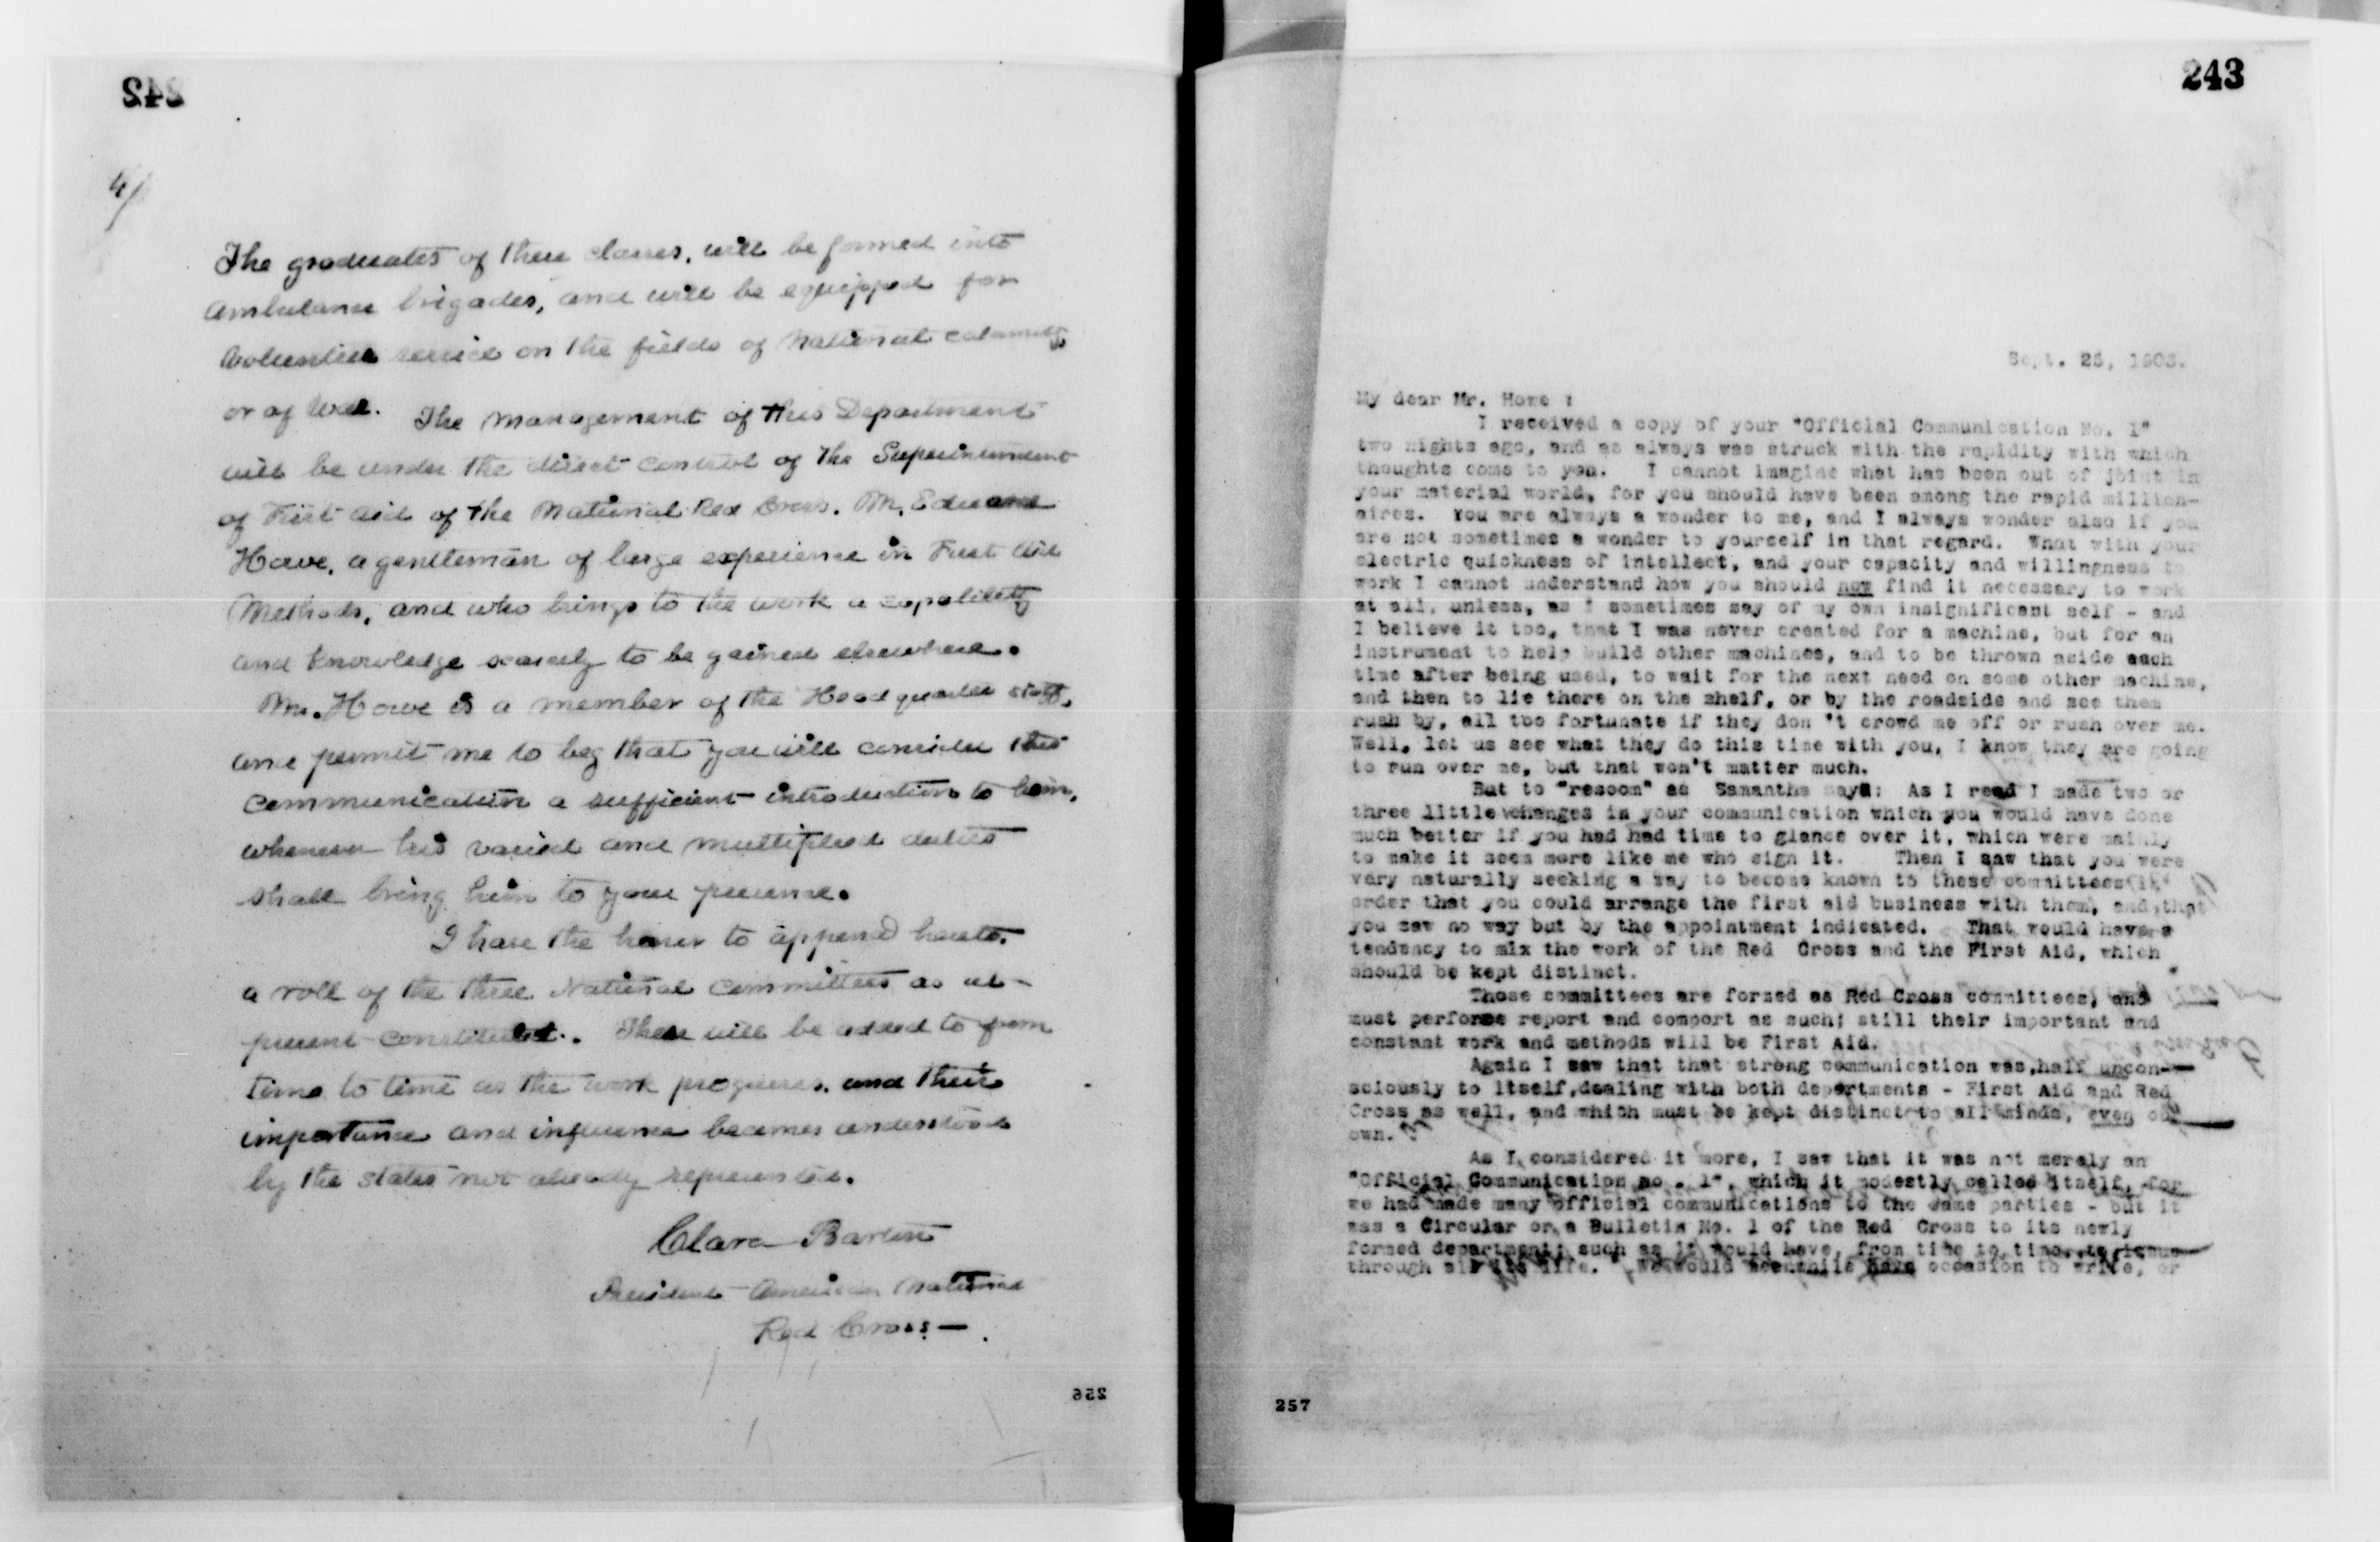 242
4/
The graduates of these classes, will be formed into
ambulance brigades, and will be equipped for
volunteer service on the fields of National calamity,
or of war. The management of this Department
will be under the direct control of the Superintendent
of First Aid of the National Red Cross. Mr. Edward
Howe, a gentleman of large experience in First Aid
Methods, and who brings to the work a capability
and knowledge scarcely to be gained elsewhere.
Mr. Howe is a member of the Headquarter staff,
and permit me to beg that you will consider this
communication a sufficient introduction to him,
whenever his varied and multiplied duties
shall bring him to your presence.
I have the honor to append hereto,
a roll of the three National Committees as at
present constituted. These will be added to from
time to time as the work progresses, and their
importance and influence becomes understood
by the states not already represented.
Clara Barton
President American National
Red Cross —
256
243
Sept. 25, 1903.
My dear Mr. Howe :
I received a copy of your "Official Communication No. 1"
two nights ago, and as always was struck with the rapidity with which
thoughts come to you. I cannot imagine what has been out of joint in
your material world, for you should have been among the rapid million-
aires. You are always a wonder to me, and I always wonder also if you
are not sometimes a wonder to yourself in that regard. What with your
electric quickness of intellect, and your capacity and willingness to
work I cannot understand how you should now find it necessary to work
at all, unless, as I sometimes say of my own insignificant self - and
I believe it too, that I was never created for a machine, but for an
instrument to help build other machines, and to be thrown aside each
time after being used, to wait for the next need on some other machine,
and then to lie there on the shelf, or by the roadside and see them
rush by, all too fortunate if they don 't crowd me off or rush over me.
Well, let us see what they do this time with you, I know they are going
to run over me, but that won't matter much.
But to "resoom" as Samantha says: As I read I made two or
three little changes in your communication which you would have done
much better if you had had time to glance over it, which were mainly
to make it seem more like me who sign it. Then I saw that you were
very naturally seeking a way to become known to these committees in
order that you could arrange the first aid business with them, and that
you saw no way but by the appointment indicated. That would have a
tendency to mix the work of the Red Cross and the First Aid, which
should be kept distinct.
Those committees are formed as Red Cross committees, and
must perforce report and comport as such; still their important and
constant work and methods will be First Aid.
Again I saw that that strong communication was, half uncon-
sciously to itself, dealing with both departments - First Aid and Red
Cross as well, and which must be kept distinct to all minds, even our
own.
As I considered it more, I saw that it was not merely an
"Official Communication no . 1", which it modestly called itself, for
we had made many official communications to the same parties - but it
was a Circular or a Bulletin No. 1 of the Red Cross to its newly
formed department; such as it would have, from time to time, to issue
through all its life. We would meanwhile have occasion to write, or
257